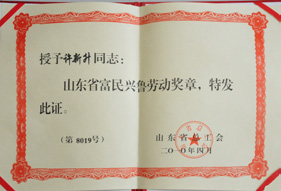 授予许新升同志：
山东省富民兴鲁劳动奖章，特发
此证。
（第8019号）
山东省总工会
二〇一〇年四月